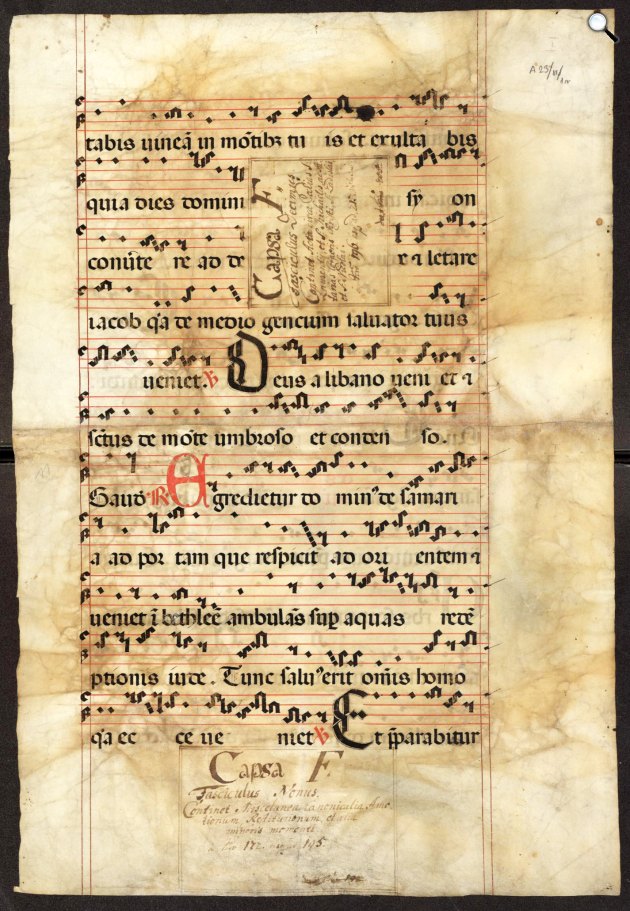 A 23/VI/
tabis uineā in mōtibꝫ tu is et exulta bis
quia dies domini sy on
conūte re ad de r ⁊ letare
iacob q̄a de medio gencium saluator tuus
ueniet. ℣ Deus a libano ueni et ⁊
sc̄tus de mōte umbroso et conden so.
Sauō ℟ Egredietur do min' de samari
a ad por tam que respicit ad ori entem ⁊
ueniet ī bethleē ambulās suꝑ aquas redē
ptionis iude. Tunc salu'erit om̄is homo
q̄a ec ce ue niet ℣ Et p̄parabitur
Capsa F.
Fasciculus Decimus
Continet
Capsa F.
Fasciculus Nonus.
Continet Miscelanea canonicalia
tionum Redituionum, et alia
minoris momenti.
172 usque 195.